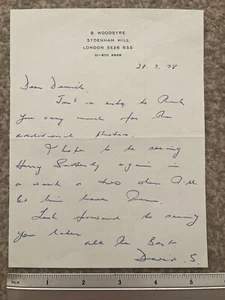 8 WOODSYRE
SYDENHAM HILL
LONDON SE26 6SS
Dear Dennis,
Just a note to thank
you very much for the
additional photos.
I hope to be seeing
Harry again in
a week or two then I'll
let him have them.
Look forward to seeing
you later
All the Best
David S.